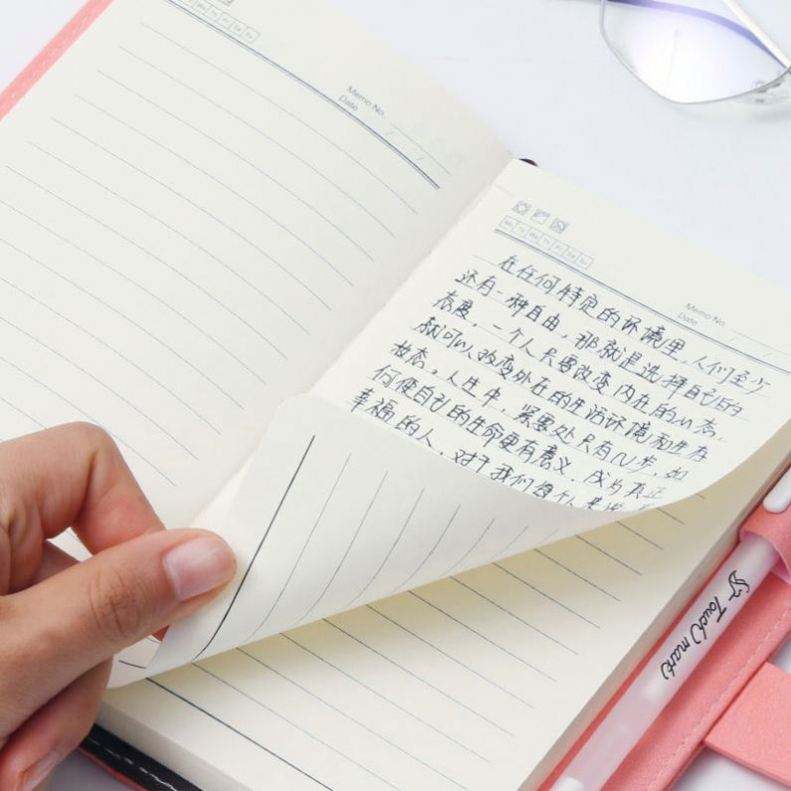 Memo No.
Date
Mo Tu We Th Fr Sa Su
Memo No.
Date
在任何特定的环境里,人们至少
还有一种自由,那就是选择自己的
态度,一个人只要改变内在的心态,
就可以改变外在的生活环境和生存
状态。人生中,紧要处只有几步,如
何使自己的生命更有意义,成为真正
幸福的人,对于我们每个人来说
Touch mark